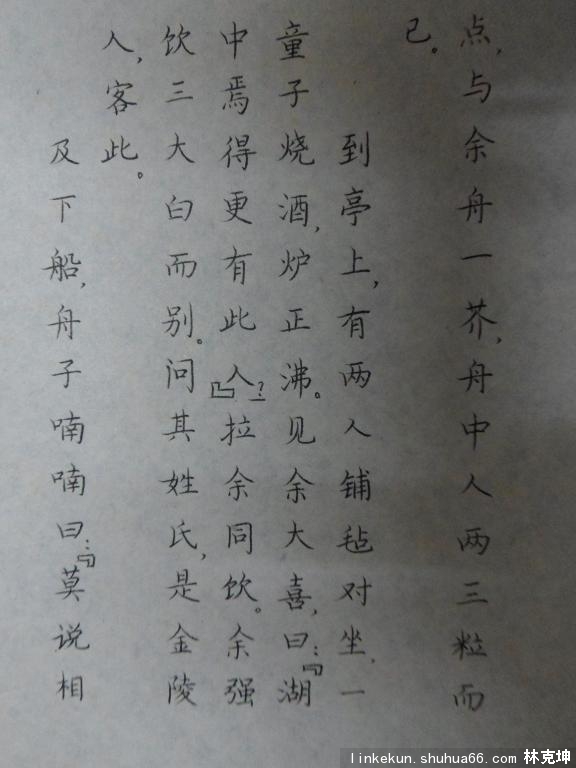 点，与余舟一芥，舟中人两三粒而
已。
到亭上，有两人铺毡对坐，一
童子烧酒，炉正沸。见余大喜，曰：『湖
中焉得更有此人？』拉余同饮。余强
饮三大白而别。问其姓氏，是金陵
人，客此。
及下船，舟子喃喃曰：『莫说相
linkekun.shuhua66.com 林克坤